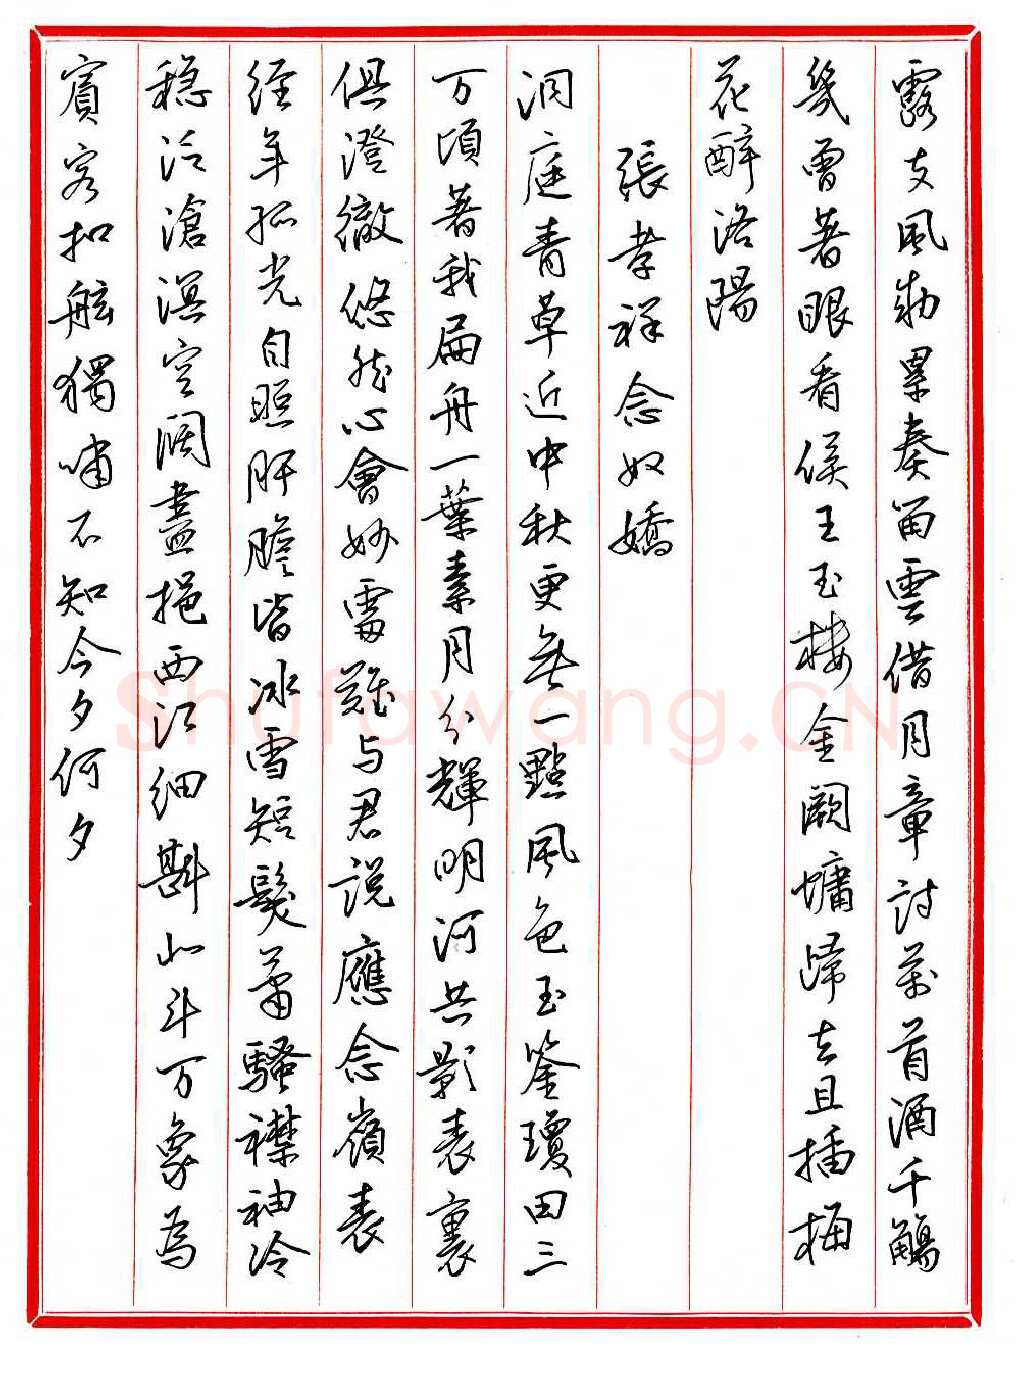 露支風勅累奏留雲借月章詩萬首酒千觴
幾曾著眼看侯王玉樓金闕慵歸去且插梅
花醉洛陽
張孝祥念奴嬌
洞庭青草近中秋更無一點風色玉鑒瓊田三
万頃著我扁舟一葉素月分輝明河共影表裏
俱澄徹悠然心會妙處難与君説應念嶺表
经年孤光自照肝膽皆冰雪短髮蕭騷襟袖冷
稳泛滄溟空闊盡挹西江细斟北斗万象為
賓客扣舷獨嘯不知今夕何夕
Shufawang.CN